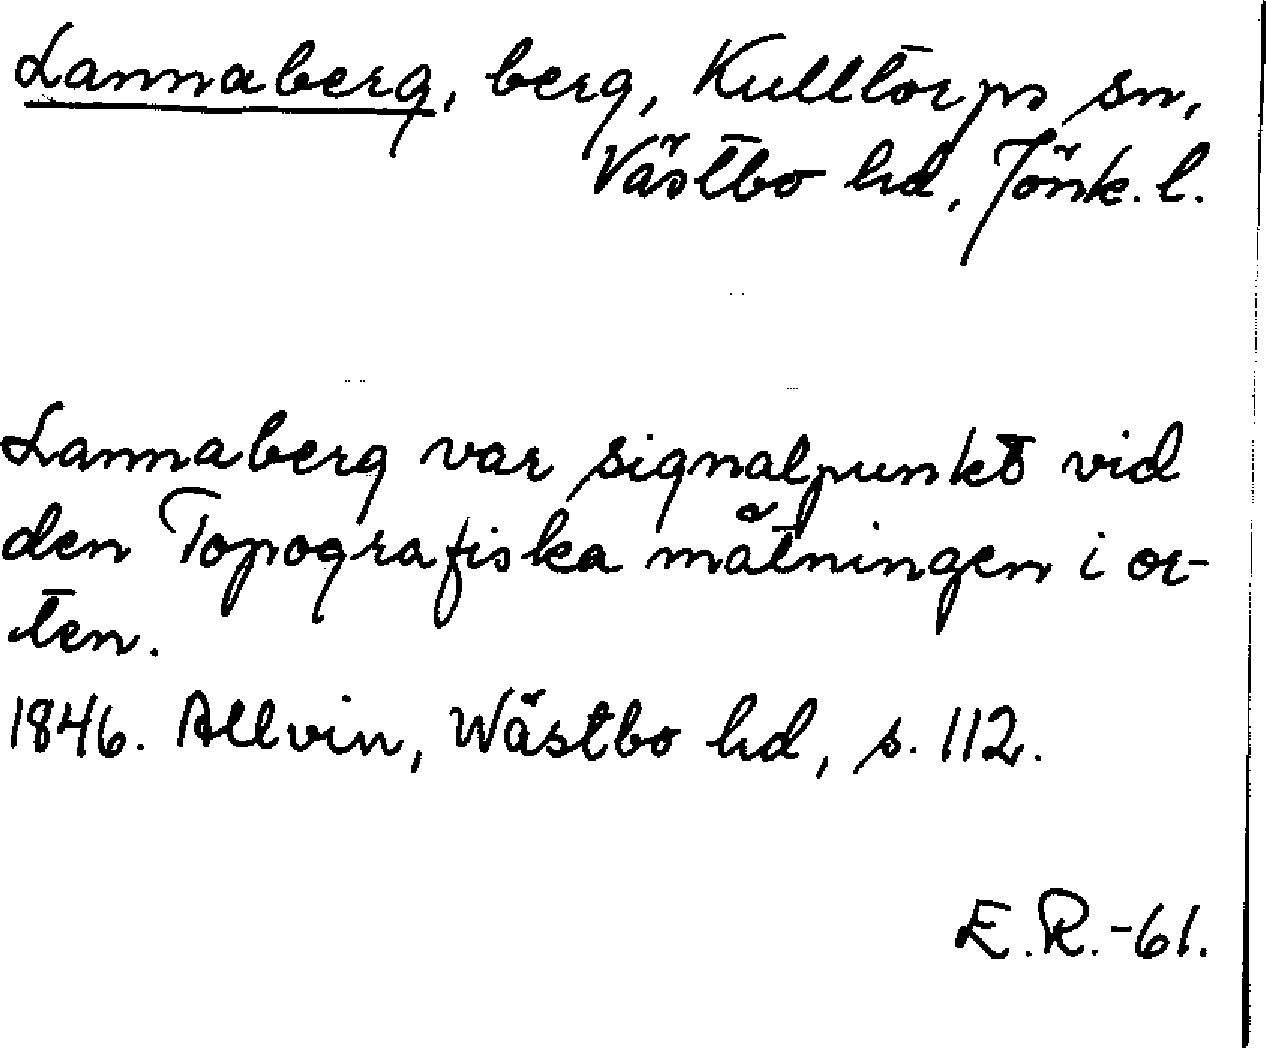 Lannaberg, berg, Kulltorps sn,
Västbo hd, Jönk. l.
Lannaberg var signalpunkt vid
den Topografiska mätningen i or-
ten.
1846. Allvin, Wästbo hd, s. 112.
E.R.-61.